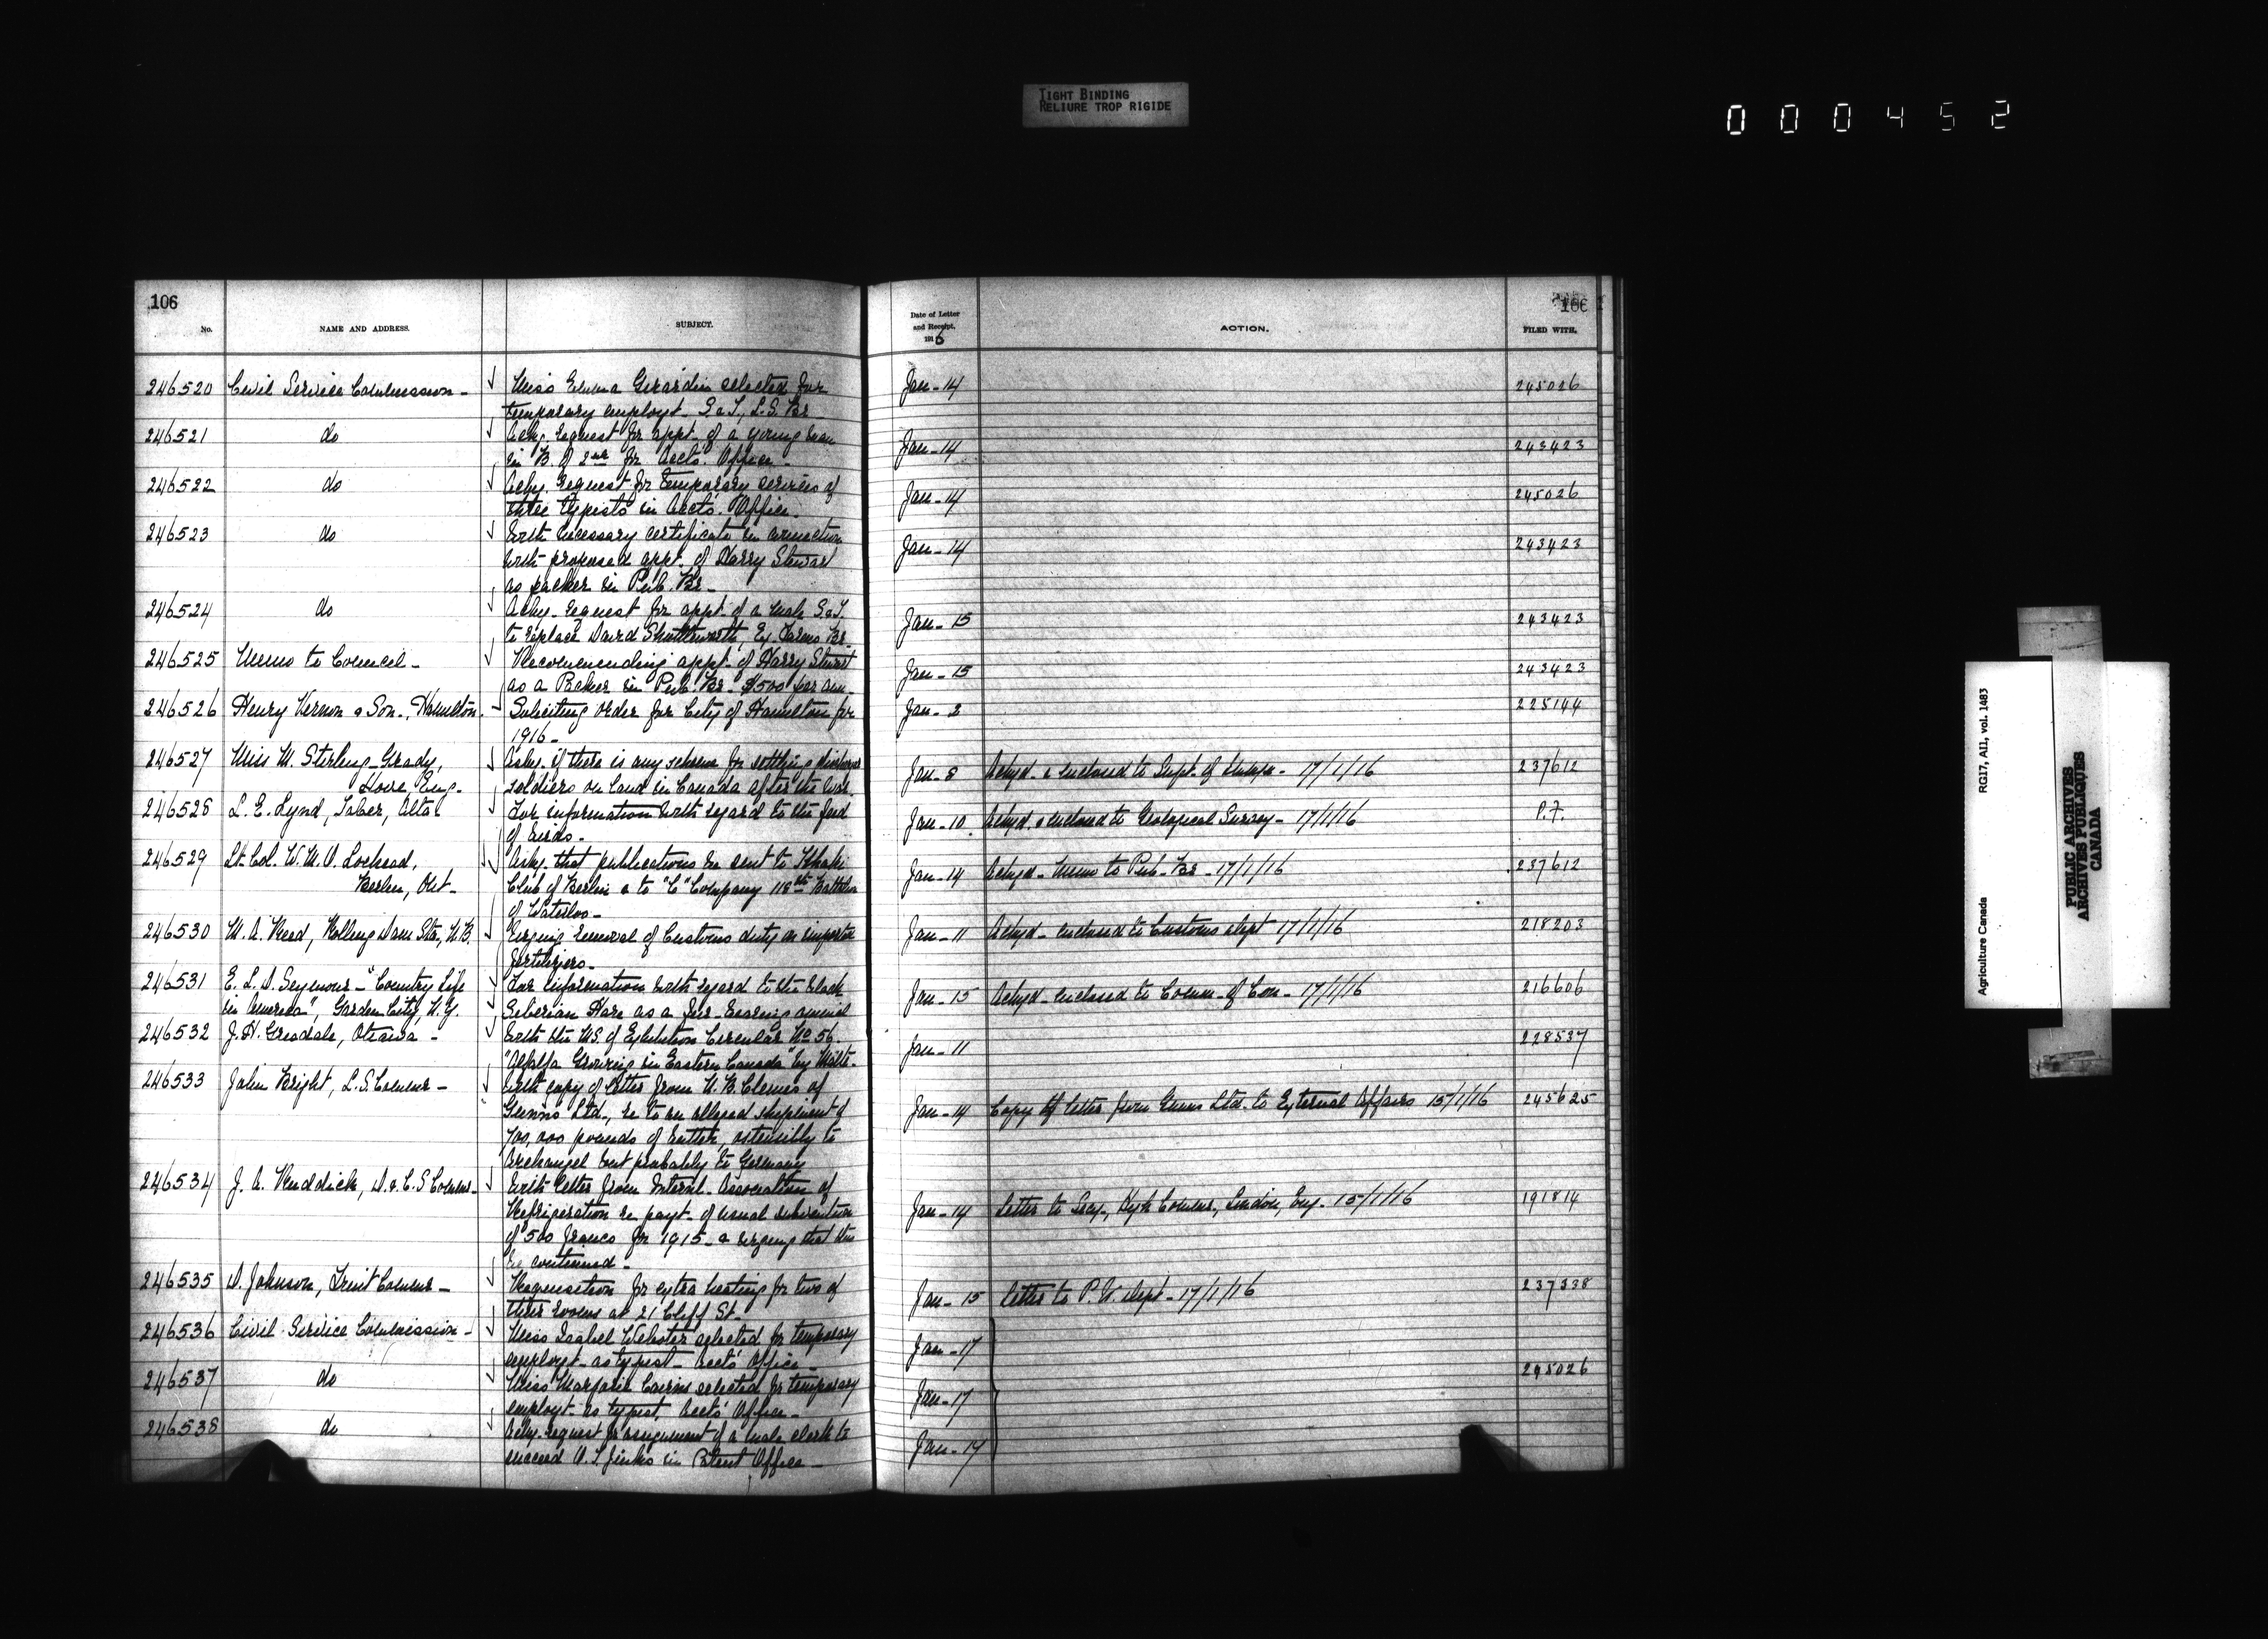 TIGHT BINDING
RELIURE TROP RIGIDE
000452
106
No.
NAME AND ADDRESS.
SUBJECT.
Date of Letter
and Receipt.
1916
ACTION.
106
FILED WITH.
246520 Civil Service Commission - Miss Emma Girardin selected for Jan - 14 245026
temporary employt. S & T, L.S. Br
246521 do Ackg. request for appt. of a young man Jan - 14 243423
in B. of 2nd for Accts. Office -
246522 do Ackg. request for temporary services of Jan - 14 245026
three typists in Accts. Office -
246523 do With necessary certificate in connection Jan - 14 243423
with proposed appt. of Harry Stewart
as packer in Pub. Br -
246524 do Ackg. request for appt. of a male S & T Jan - 15 243423
to replace David Shuttleworth, Ex. Farms Br
246525 Memo to Council - Recommending appt. of Harry Stewart Jan - 15 243423
as a Packer in Pub. Br - $500 per ann -
246526 Henry Vernon & Son, Hamilton. Soliciting order for City of Hamilton for Jan - 2 225144
1916 -
246527 Miss M. Sterling Grady, Askg. if there is any scheme for settling Jan - 8 Ackgd. & enclosed to Supt. of - 17/1/16 237612
Hove, Eng. - soldiers on land in Canada after the war.
246528 L. E. Lynd, Taber, Alta For information with regard to the food Jan - 10. Ackgd. & enclosed to Geological Survey - 17/1/16 P.F.
of birds -
246529 Lt. Col. W. M. O. Lochead, Askg. that publications be sent to Khaki Jan - 14 Ackgd - Memo to Pub - Br - 17/1/16 237612
Berlin, Ont - Club of Berlin & to "C" Company 118th Battalion
of Waterloo -
246530 M. A. Reed, Rolling Dam Sta., N.B. Urging removal of Customs duty on imported Jan - 11 Ackgd - enclosed to Customs Dept 17/1/16 218203
fertilizers -
246531 E. L. D. Seymour - "Country Life For information with regard to the black Jan - 15 Ackgd - enclosed to Comm - of Con - 17/1/16 216606
in America", Garden City, N.Y. Siberian Hare as a fur-bearing animal
246532 J. H. Grisdale, Ottawa - With the MS. of Exhibition Circular No 56 Jan - 11 228537
"Alfalfa Growing in Eastern Canada" by
246533 John Bright, L.S. Commr - With copy of letter from N. B. Clemes of Jan - 14 Copy of letter from Gunns Ltd. to External Affairs 15/1/16 245625
Gunns Ltd., re to an alleged shipment of
700,000 pounds of butter, ostensibly to
Archangel but probably to Germany
246534 J. A. Ruddick, D. & C. S Commr - With letter from Internl. Association of Jan - 14 Letter to Secy -, High Commr, London, Eng - 15/1/16 191814
Refrigeration re payt. of usual subvention
of 500 francs for 1915 - & urging that this
be continued -
246535 D. Johnson, Fruit Commr - Requisition for extra heating for two of Jan - 15 Letter to P. W. Dept - 17/1/16 237338
their rooms at 21 Cliff St -
246536 Civil Service Commission - Miss Isabel Webster selected for temporary Jan - 17
employt - as typist - Accts' Office -
246537 do Miss Marjorie Cairns selected for temporary Jan - 17 245026
employt - as typist, Accts' Office -
246538 do Ackg. request for assignment of a male clerk to Jan - 17
succeed A. S. Jinks in Patent Office -
Agriculture Canada RG17, A11, vol. 1483
PUBLIC ARCHIVES
ARCHIVES PUBLIQUES
CANADA